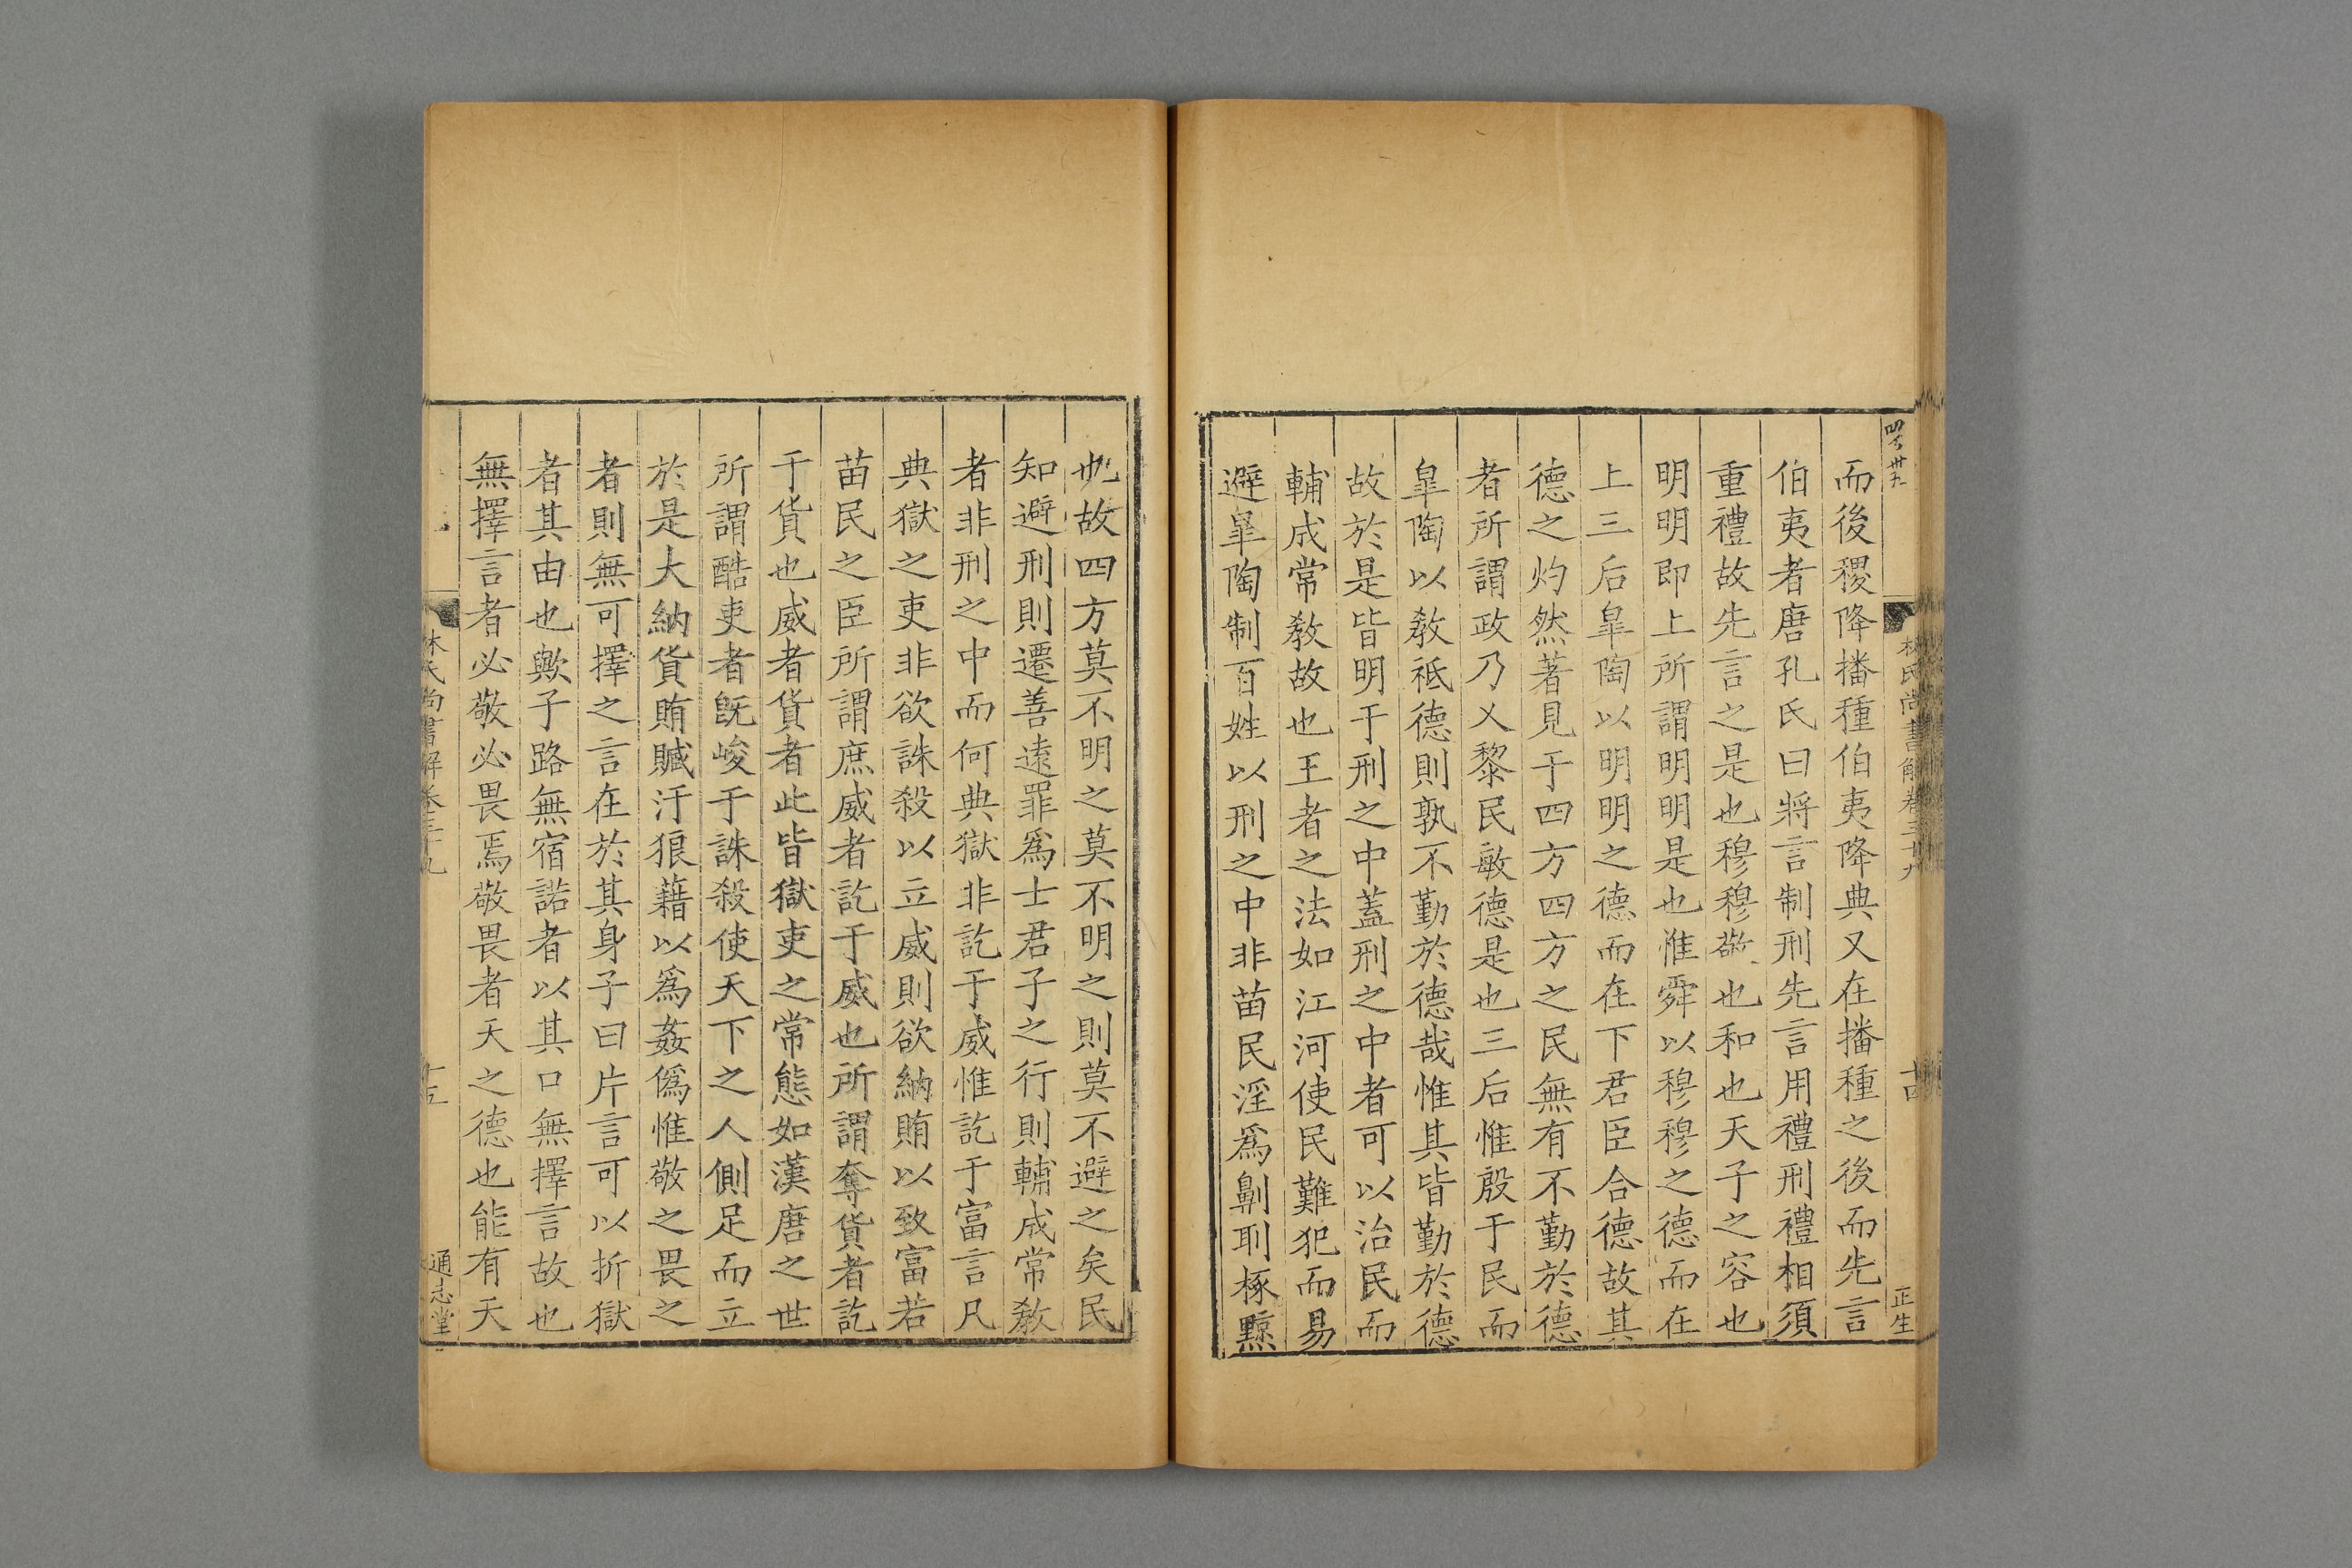 而後稷降播種伯夷降典又在播種之後而先言
伯夷者唐孔氏曰將言制刑先言用禮刑禮相須
重禮故先言之是也穆穆敬也和也天子之容也
明明即上所謂明明是也惟舜以穆穆之德而在
上三后皐陶以明明之德而在下君臣合德故其
德之灼然著見于四方四方之民無有不勤於德
者所謂政乃乂黎民敏德是也三后惟殷于民而
皐陶以敎祗德則孰不勤於德哉惟其皆勤於德
故於是皆明于刑之中蓋刑之中者可以治民而
輔成常敎故也王者之法如江河使民難犯而易
避皐陶制百姓以刑之中非苗民淫爲劓刵椓黥
也故四方莫不明之莫不明之則莫不避之矣民
知避刑則遷善遠罪爲士君子之行則輔成常敎
者非刑之中而何典獄非訖于威惟訖于富言凡
典獄之吏非欲誅殺以立威則欲納賄以致富若
苗民之臣所謂庶威者訖于威也所謂奪貨者訖
于貨也威者貨者此皆獄吏之常態如漢唐之世
所謂酷吏者旣峻于誅殺使天下之人側足而立
於是大納貨賄贓汙狼藉以爲姦僞惟敬之畏之
者則無可擇之言在於其身子曰片言可以折獄
者其由也歟子路無宿諾者以其口無擇言故也
無擇言者必敬必畏焉敬畏者天之德也能有天
林氏尚書解卷三十九
十五
通志堂
林氏尚書解卷三十九
十四
正生